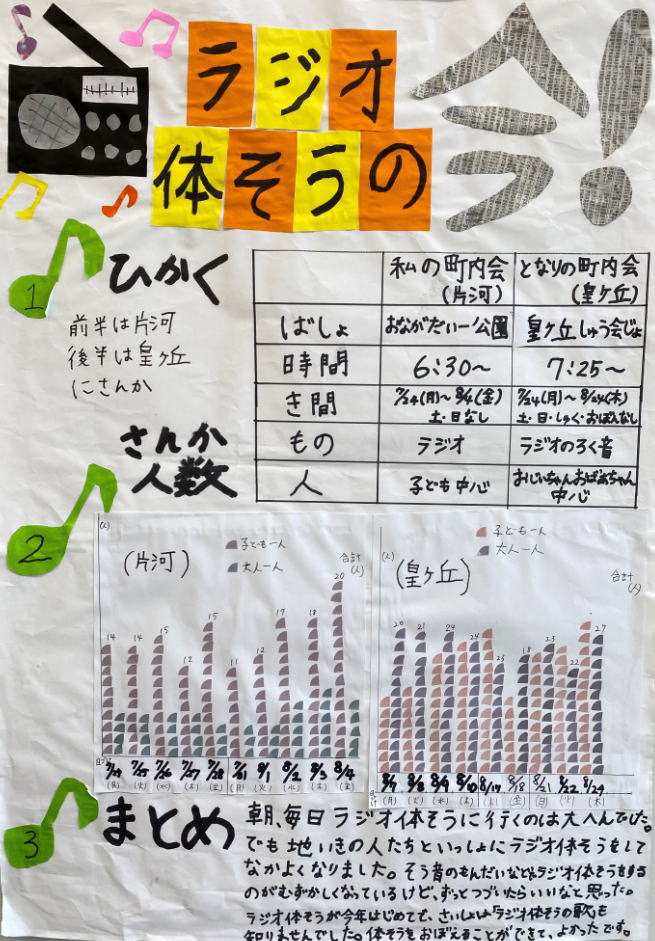 ラジオ
体そうの
今!
1
ひかく
前半は片河
後半は皇ケ丘
にさんか
私の町内会(片河)
となりの町内会(皇ケ丘)
ばしょ
おながだい一公園
皇ケ丘しゅう会じょ
時間
6:30~
7:25~
き間
7/24(月)~8/4(金)
土・日なし
7/24(月)~8/24(木)
土・日・しゅく・おぼんなし
もの
ラジオ
ラジオのろく音
人
子ども中心
おじいちゃんおばあちゃん
中心
2
さんか
人数
(人)
(片河)
子ども一人
大人一人
合計(人)
14
14
15
12
15
11
12
17
18
20
7/24 7/25 7/26 7/27 7/28 7/31 8/1 8/2 8/3 8/4
(月) (火) (水) (木) (金) (月) (火) (水) (木) (金)
(人)
(皇ケ丘)
子ども一人
大人一人
合計(人)
20
21
24
24
23
18
23
22
27
8/7 8/8 8/9 8/10 8/17 8/18 8/21 8/22 8/24
(月) (火) (水) (木) (木) (金) (月) (火) (木)
3
まとめ
朝、毎日ラジオ体そうに行くのは大へんでした。
でも地いきの人たちといっしょにラジオ体そうをして
なかよくなりました。そう音のもんだいなどでラジオ体そうをする
のがむずかしくなっているけど、ずっとつづいたらいいなと思った。
ラジオ体そうが今年はじめてで、さいしょは「ラジオ体そうの歌」も
知りませんでした。体そうをおぼえることができて、よかったです。